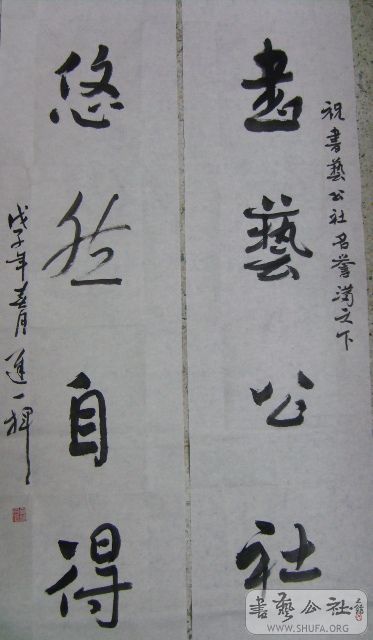 祝書藝公社名譽滿天下
書藝公社
悠然自得
戊子年春月進一禅
書藝公社
WWW.SHUFA.ORG